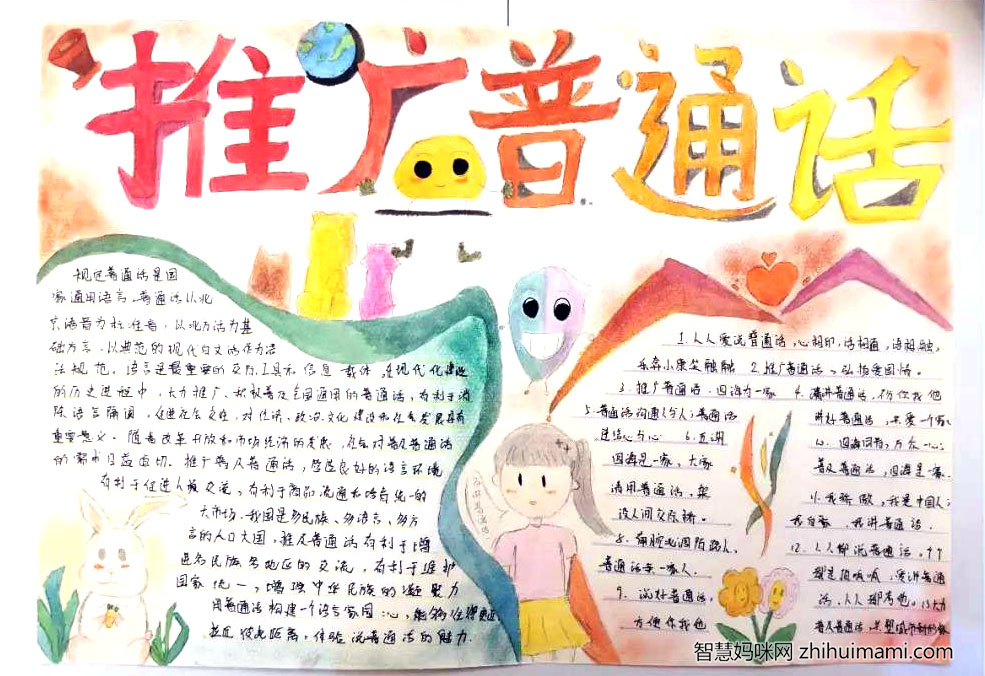 推广普通话
规范普通话是国
家通用语言。普通话以北
京语音为标准音，以北方话为基
础方言，以典范的现代白文话作为语
法规范。语言是最重要的交际工具和信息载体，在现代化建设
的历史进程中，大力推广、积极普及全国通用的普通话，有利于消
除语言隔阂，促进社会交往，对经济、政治、文化建设和社会发展具有
重要意义。随着改革开放和市场经济的发展，社会对普及普通话
的需求日益迫切。推广普及普通话，营造良好的语言环境
有利于促进人员交流，有利于商品流通和培育统一的
大市场。我国是多民族、多语言、多方
言的人口大国，推广普通话有利于增
进各民族各地区的交流，有利于维护
国家统一，增强中华民族的凝聚力
用普通话构建一个语言家园
彼此距离，体验说普通话的魅力
1.人人爱说普通话，心相印，话相通，语相融，
2.推广普通话，弘扬爱国情。
3.推广普通话，四海为一家
4.
5.普通话沟通
连结心与心
6.
四海是一家，大家
请用普通话，架
设人间交际桥。
8.
普通话亲一家人。
9.说好普通话，
方便你我他
讲好普通话，共爱一个家
普及普通话，四海是一家。
我骄傲，我是中国人；
我自豪，我讲普通话。
12.人人都说普通话，
智慧妈咪网 zhihuimami.com